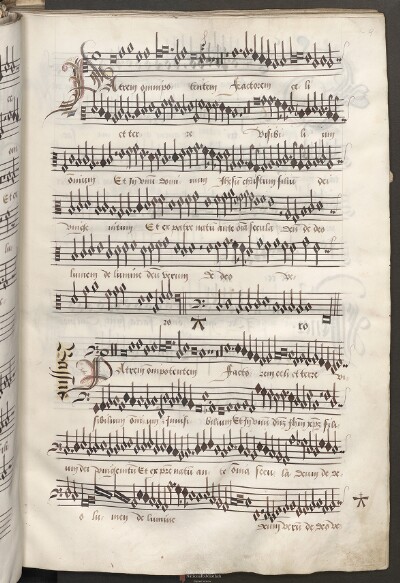 Patrem omnipo tentem factorem ce li
et ter re visibi li um
omnium Et in unū dominum Jhesū christum filiū dei
unige nitum Et ex patre natū ante oīa secula deū de deo
lumen de lumine deū verum de deo ve
ro ro
Bassus
Patrem omnipotentem facto rem celi et terre vi
sibilium omnium Invisi bilium Et in unū
um dei unigenitū Et ex p̄re natū an te omīa secu la Deum de de
o lu men de lumine deum verū de deo ve